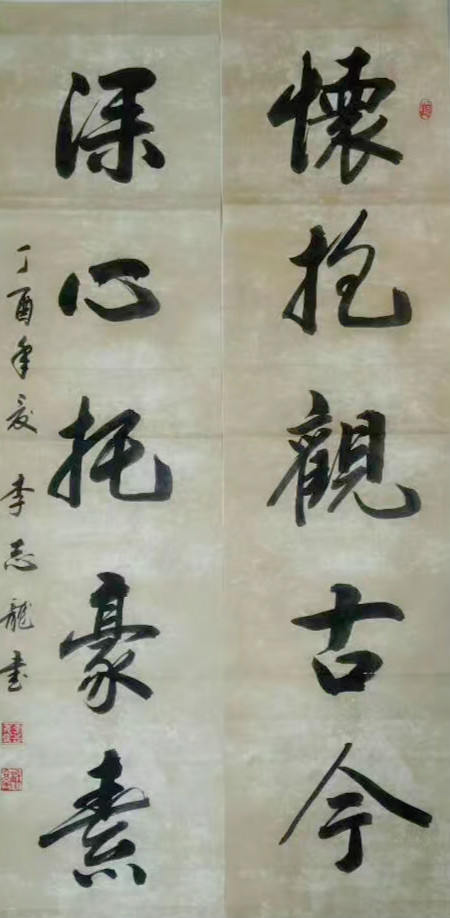 懷抱觀古今
深心托豪素
丁酉年夏 李志龍書